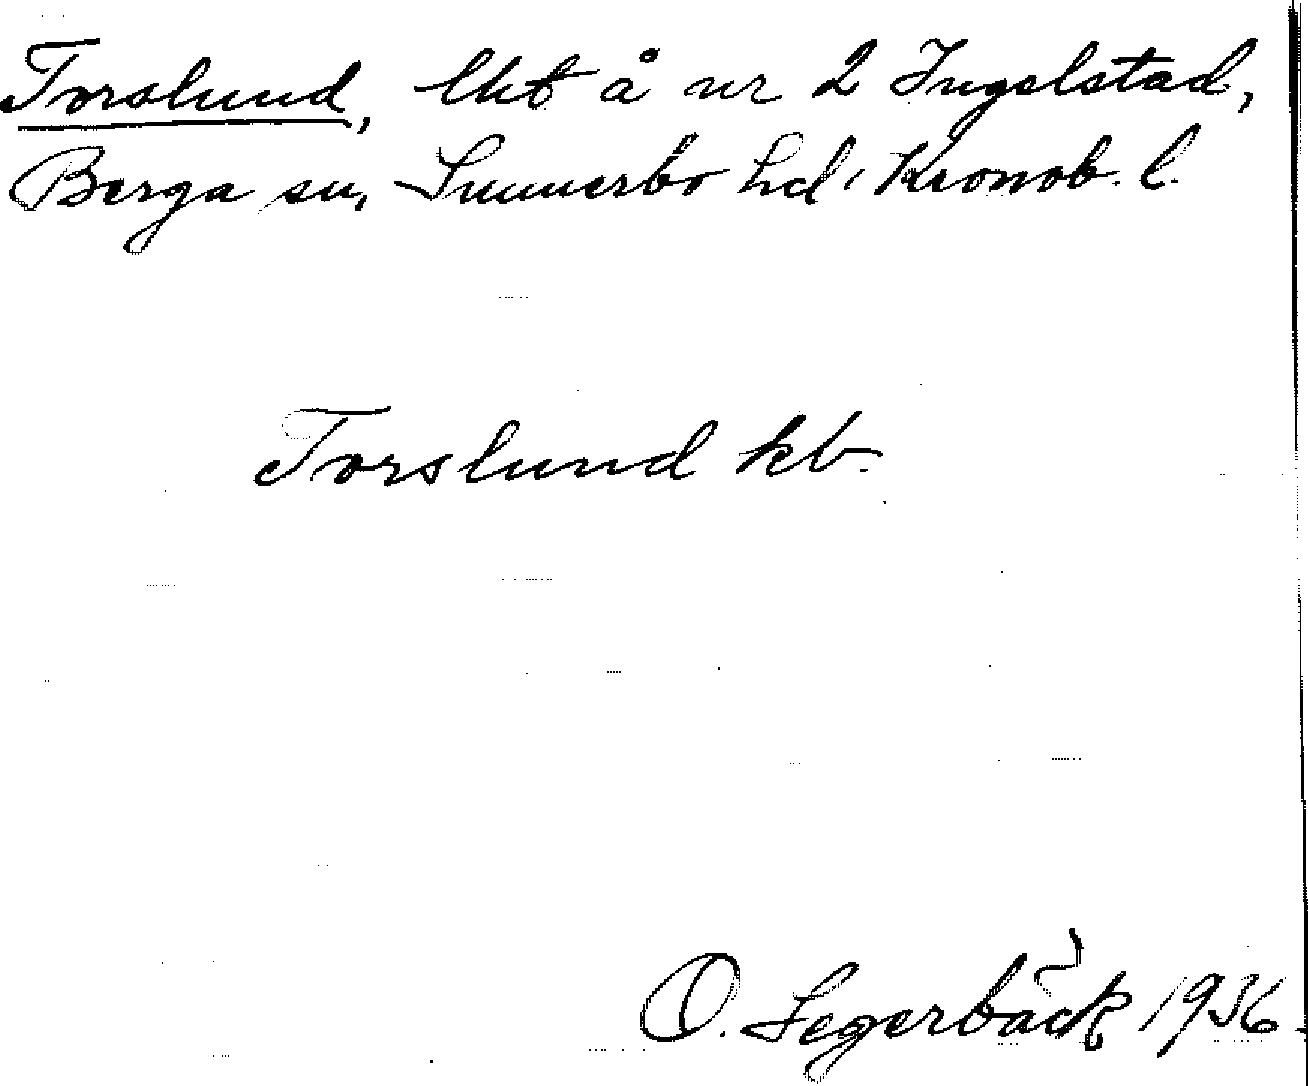 Torslund, lht å nr 2 Ingelstad,
Berga sn, Sunnerbo hd, Kronob. l.
Torslund kb.
O. Segerbäck 1936.